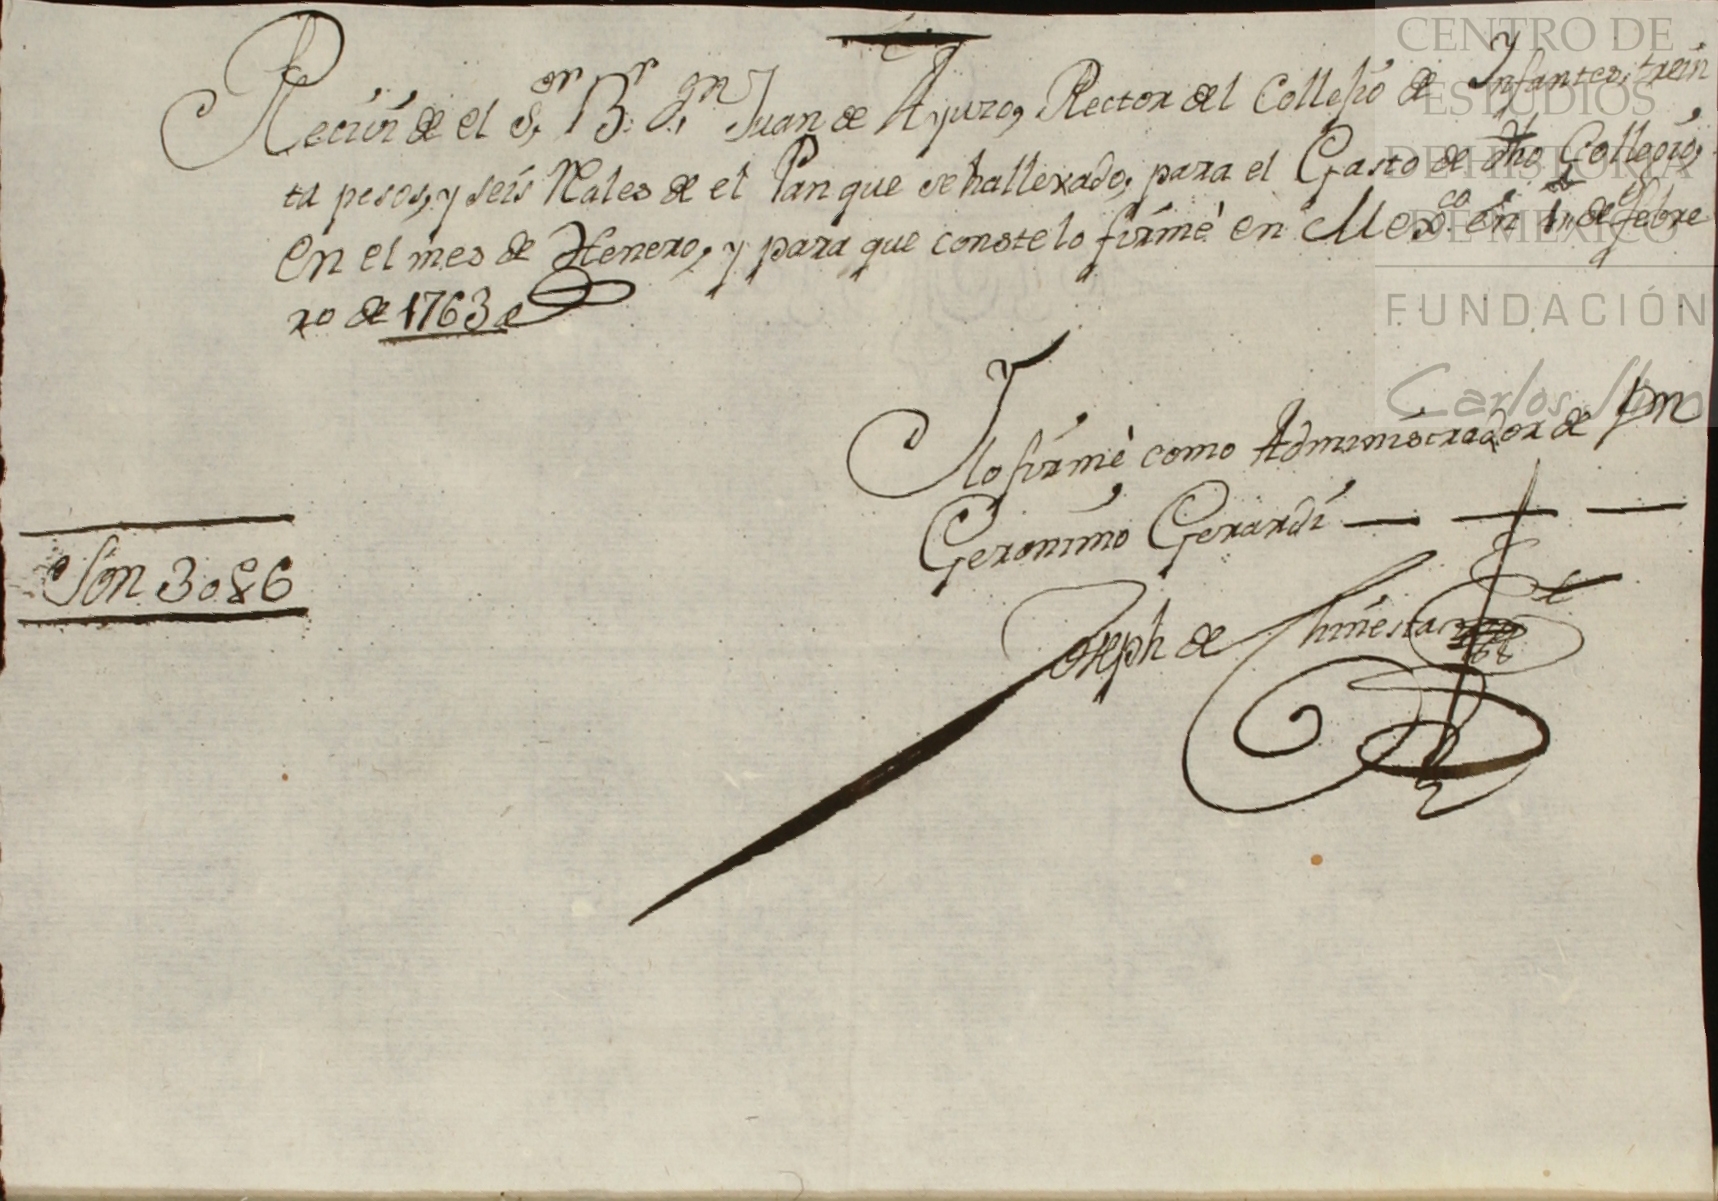 CENTRO DE
ESTUDIOS
DE HISTORIA
DE MÉXICO
FUNDACIÓN
Carlos Slim
Reciui de el Sr. Br. Dn. Juan de Ayuzo, Rector del Collejio de Ynfantes, trein
ta pesos, y seis Rales de el Pan que se ha llexado, para el Gasto de dho Collegio,
en el mes de Henero, y para que conste lo firmè en Mexco. en 1o. de febre
ro de 1763
Y lo firmè como Administrador de Dn
Geronimo Gerardi
Son 30 86
Joseph de